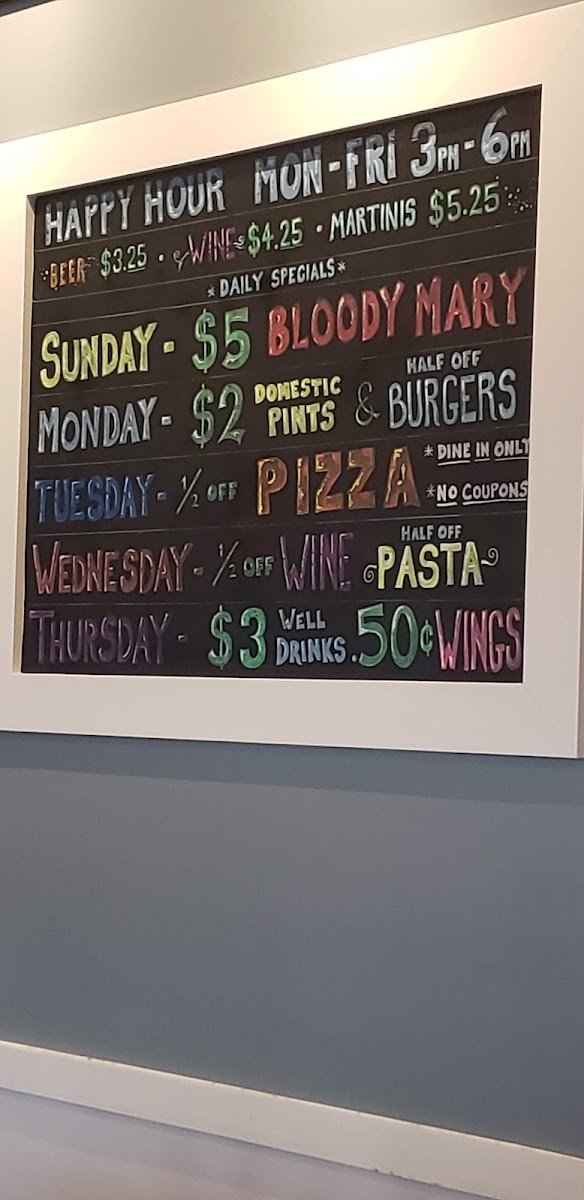 HAPPY HOUR MON-FRI 3PM-6PM
BEER $3.25 • WINE $4.25 • MARTINIS $5.25
*DAILY SPECIALS*
SUNDAY - $5 BLOODY MARY
MONDAY - $2 DOMESTIC PINTS & HALF OFF BURGERS
TUESDAY - 1/2 OFF PIZZA *DINE IN ONLY
*NO COUPONS
WEDNESDAY - 1/2 OFF WINE HALF OFF PASTA
THURSDAY - $3 WELL DRINKS .50¢ WINGS